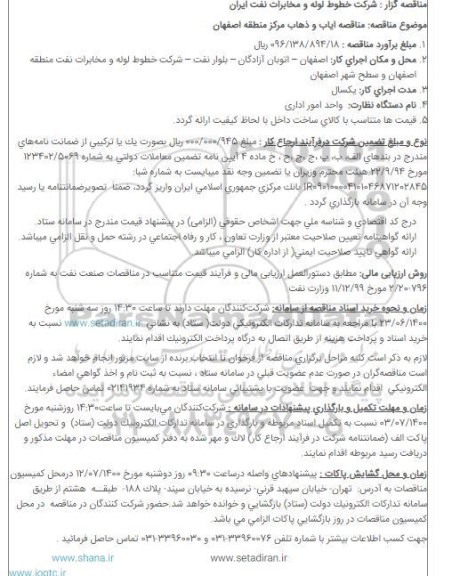 مناقصه گزار : شرکت خطوط لوله و مخابرات نفت ایران
موضوع مناقصه: مناقصه ایاب و ذهاب مرکز منطقه اصفهان
۱. مبلغ برآورد مناقصه : ۰۹۶/۱۳۸/۸۹۴/۱۸ ریال
۲. محل و مکان اجراي کار: اصفهان – اتوبان آزادگان – بلوار نفت – شرکت خطوط لوله و مخابرات نفت منطقه
اصفهان و سطح شهر اصفهان
۳. مدت اجراي کار: یکسال
۴. نام دستگاه نظارت: واحد امور اداری
۵. قیمت ها متناسب با کالاي ساخت داخل با لحاظ کیفیت ارائه گردد.
نوع و مبلغ تضمین شرکت درفرآیند ارجاع کار : مبلغ ۰۰۰/۰۰۰/۹۴۵ ریال بصورت یك یا ترکیبي از ضمانت نامه‌هاي
مندرج در بندهاي الف، ب، پ ،ج ،چ ،ح ، خ ماده ۴ آیین نامه تضمین معاملات دولتي به شماره ۱۲۳۴۰۲/۵۰۶۹
مورخ ۲۲/۹/۹۴ هیئت محترم وزیران یا تضمین وجه نقد میبایست به شماره شبا:
بانك مرکزي جمهوري اسلامي ایران واریز گردد، ضمنا تصویرضمانتنامه یا رسید
وجه آن در سامانه بارگذاري گردد .
درج کد اقتصادي و شناسه ملي جهت اشخاص حقوقي (الزامی) در پیشنهاد قیمت مندرج در سامانه ستاد.
ارائه گواهینامه تعیین صلاحیت معتبر از وزارت تعاون ، کار و رفاه اجتماعي در رشته حمل و نقل الزامي میباشد.
ارائه گواهي تایید صلاحیت ایمني( از اداره کار) الزامي میباشد.
روش ارزیابی مالی: مطابق دستورالعمل ارزیابی مالی و فرآیند قیمت متناسب در مناقصات صنعت نفت به شماره
۷۹۶-۲/۲۰ مورخ ۱۱/۱۲/۹۹ وزارت نفت
زمان و نحوه خرید اسناد مناقصه از سامانه: شرکت‌کنندگان مهلت دارند تا ساعت ۱۴:۳۰ روز سه شنبه مورخ
۲۳/۰۶/۱۴۰۰ با مراجعه به سامانه تدارکات الکترونیکي دولت( ستاد) به نشاني www.setadiran.ir نسبت به
خرید اسناد و پرداخت هزینه از طریق اتصال به درگاه پرداخت الکترونیك اقدام نمایند.
لازم به ذکر است کلیه مراحل برگزاري مناقصه از فراخوان تا انتخاب برنده از سایت مزبور انجام خواهد شد و لازم
است مناقصه‌گران در صورت عدم عضویت قبلي در سامانه ستاد ، نسبت به ثبت نام و اخذ گواهي امضاء
الکترونیکي اقدام نمایند و جهت عضویت با پشتیباني سامانه ستاد به شماره ۰۲۱۴۱۹۳۴ تماس حاصل فرمایند.
زمان و مهلت تکمیل و بارگذاري پیشنهادات در سامانه : شرکت‌کنندگان مي‌بایست تا ساعت۱۴:۳۰ روزشنبه مورخ
۰۳/۰۷/۱۴۰۰ نسبت به تکمیل اسناد مربوطه و بارگذاري در سامانه تدارکات الکترونیك دولت (ستاد) و تحویل اصل
پاکت الف (ضمانتنامه شرکت در فرآیند ارجاع کار) لاك و مهر شده به دفتر کمیسیون مناقصات در مهلت مذکور و
دریافت رسید مربوطه اقدام نمایند.
زمان و محل گشایش پاکات : پیشنهادهاي واصله درساعت ۰۹:۳۰ روز دوشنبه مورخ ۱۲/۰۷/۱۴۰۰ درمحل کمیسیون
مناقصات به آدرس: تهران- خیابان سپهبد قرني- نرسیده به خیابان سپند- پلاك ۱۸۸- طبقـــه هشتم از طریق
سامانه تدارکات الکترونیك دولت (ستاد) بازگشایي و خوانده خواهد شد.حضور شرکت کنندگان در مناقصه در محل
کمیسیون مناقصات در روز بازگشایي پاکات الزامي مي باشد.
جهت کسب اطلاعات بیشتر با شماره تلفن ۳۳۹۶۰۰۷۶-۰۳۱ و ۳۳۹۶۰۰۳۰-۰۳۱ تماس حاصل فرمائید .
www.shana.ir www.setadiran.ir
www.ioptc.ir